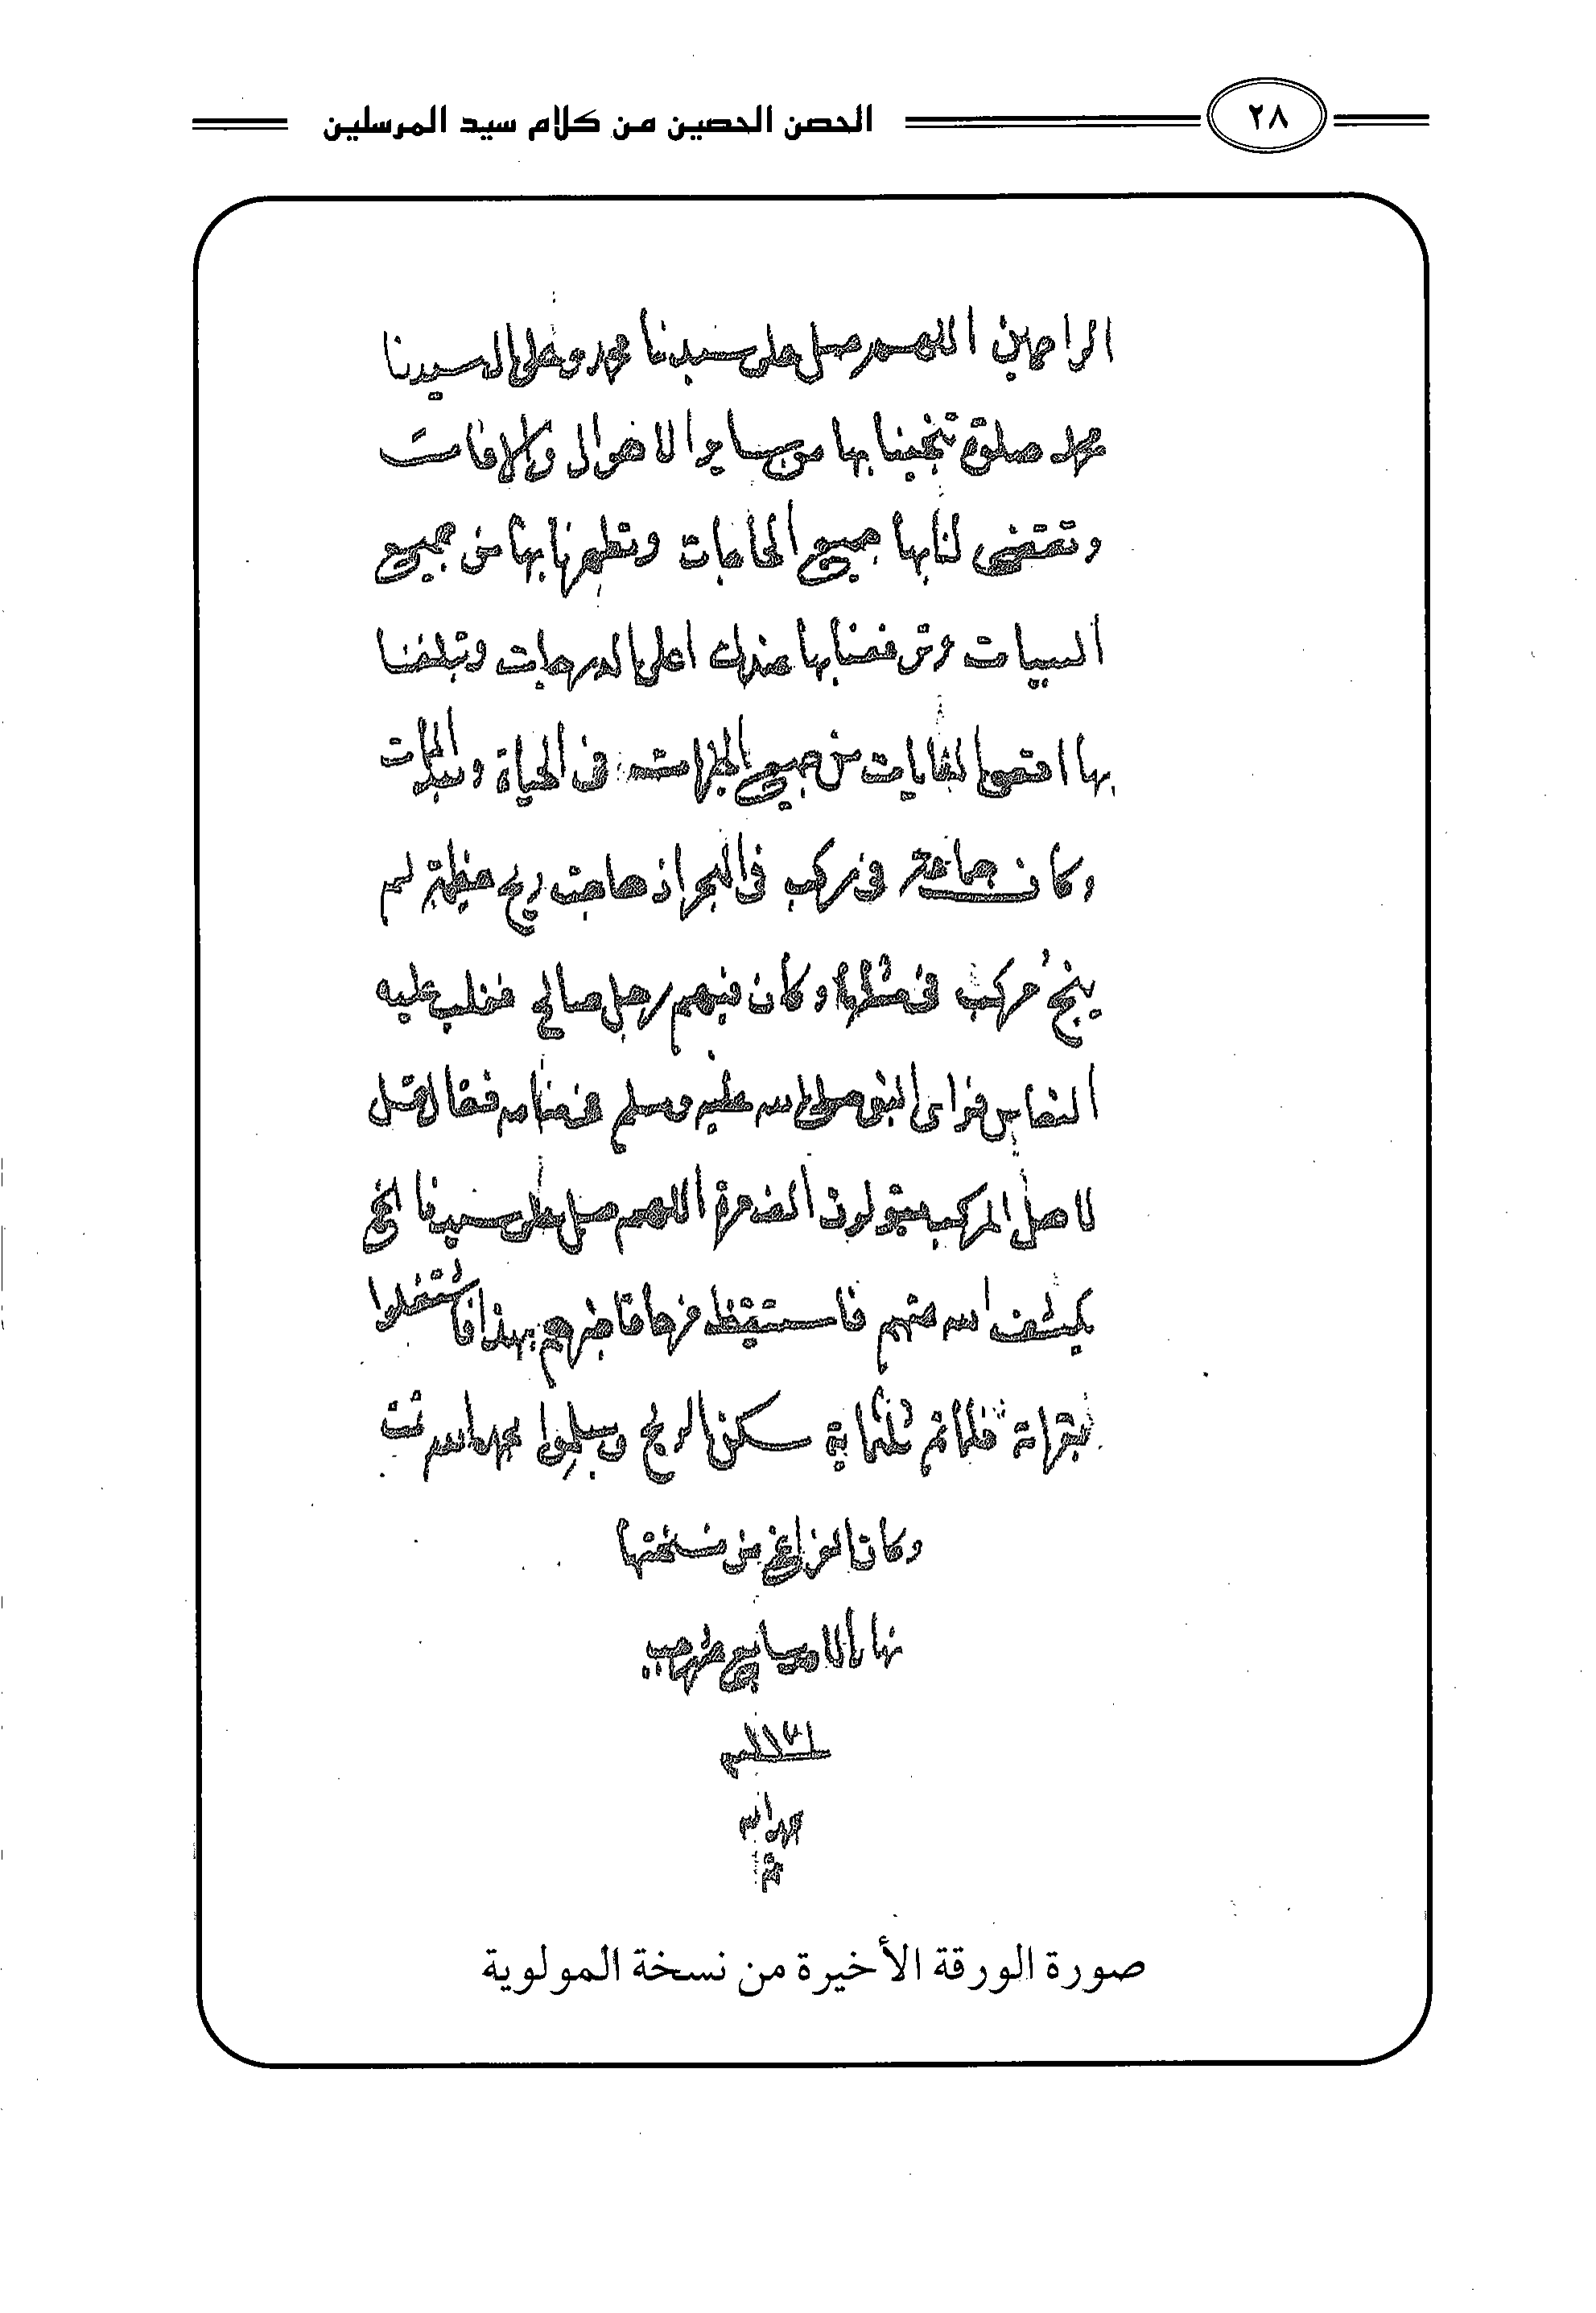 ٢٨
الحصن الحصين من كلام سيد المرسلين
الراحمين اللهم صل على سيدنا محمد وعلى ال سيدنا
محمد صلوة تنجينا بها من سا الاهوال والافات
وتقضى لنا بها جميع الحاجات وتطهرنا بها من جميع
السيات وترفعنا بها عندك اعلى الدرجات وتبلغنا
بها اقصى الغايات من جميع فى الحياة وبعد الممات
وكان جماعة فى مركب فى البحر اذ هاجت ريح عظيمة لم
ينج مركب فى مثلها وكان فيهم رجل صالح فغلب عليه
النعاس فراى النبى صلى الله عليه وسلم فى منامه فقال قل
لاهل المركب يقولون الف مرة اللهم صل على سيدنا الخ
يكشف الله عنهم فاستيقظ فرحا فاخبرهم بهذا فاشتغلوا
بقراة فلما تم ثلثماية سكن الريح وسلموا بحمد الله تمت
وكان الفراغ من نسختها
نهار الا
صورة الورقة الأخيرة من نسخة المولوية